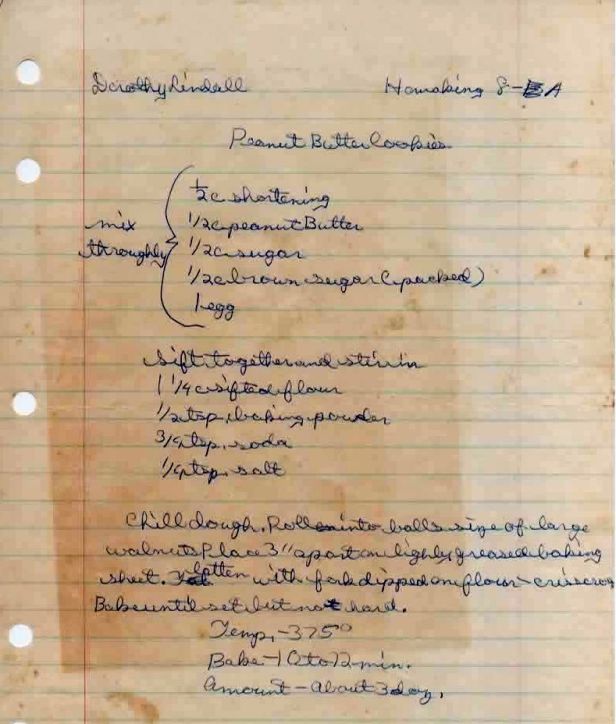 Dorothy Lindell Homaking 8-A
Peanut Butter Cookies
1/2 c shortening
1/2 c peanut Butter
1/2 c sugar
1/2 c brown sugar (packed)
1 egg
mix
throughly
Sift together and stir in
1 1/4 c sifted flour
1/2 tsp. baking powder
3/4 tsp. soda
1/4 tsp. salt
Chill dough. Roll into balls size of large
walnuts Place 3" apart on lighly greased baking
sheet. Flatten with fork dipped on flour - crisscross
Bake until set but not hard.
Temp. - 375°
Bake - 10 to 12 min.
Amount - About 3 doz.